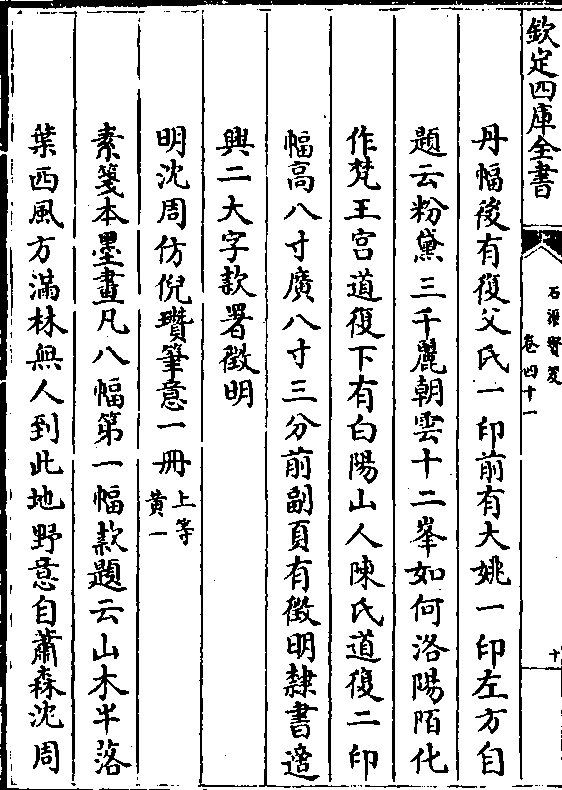 欽定四庫全書
石渠寶笈
卷四十一
十
丹幅後有復父氏一印前有大姚一印左方自
題云粉黛三千麗朝雲十二峯如何洛陽陌化
作梵王宫道復下有白陽山人陳氏道復二印
幅高八寸廣八寸三分前副頁有徵明隸書遒
興二大字款署徵明
明沈周仿倪瓚筆意一冊上等黄一
素箋本墨畫凡八幅第一幅款題云山木半落
葉西風方滿林無人到此地野意自蕭森沈周